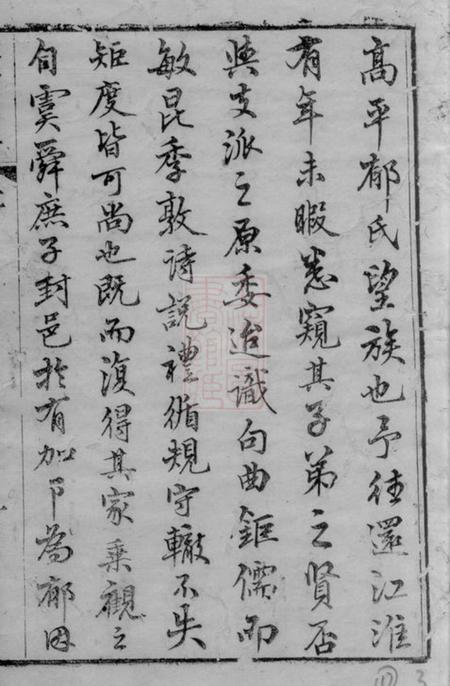 高平郁氏望族也予往還江淮
有年未暇悉窺其子弟之賢否
與支派之原委迨識句曲鉅儒而
敏昆季敦詩說禮循規守轍不失
矩度皆可尚也既而復得其家乘觀之
自虞舜庶子封邑於有加卩為郁因